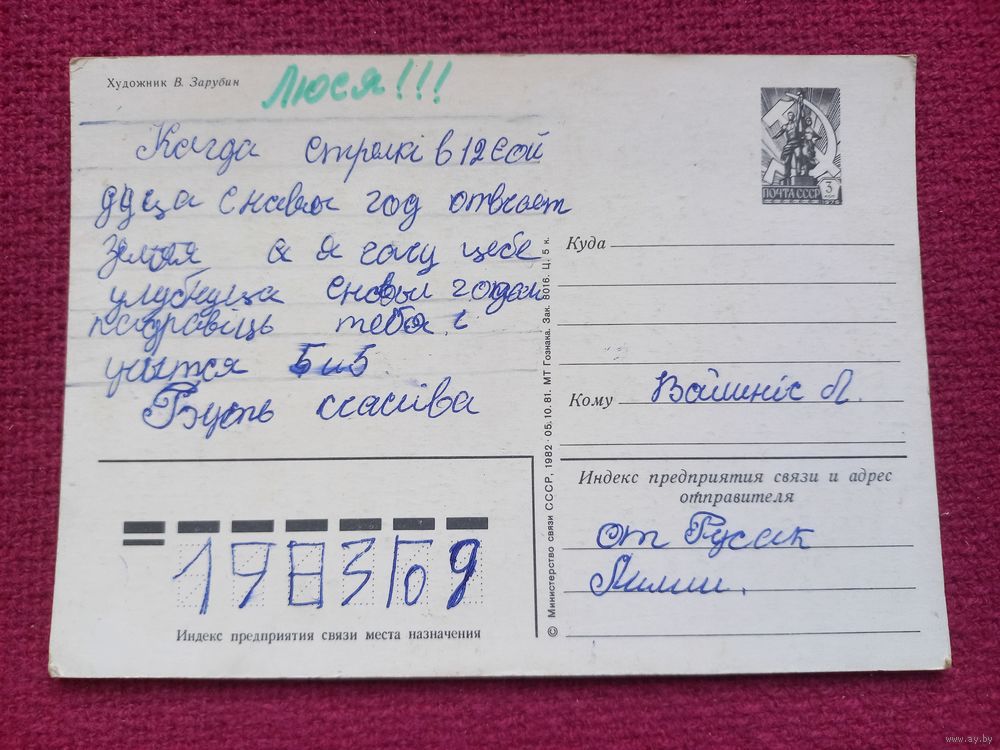 Художник В. Зарубин
Люся!!!
Кагда стрелкі в 12 сой
дуца с новым год отвсает
Земля а я хачу цебе
улубнуца с новым годам
падравіць тебя. і
учится 5 и 5
Бусть сасліва
ПОЧТА СССР
3
КОП
1976
Куда
Кому Войшніс Л.
Индекс предприятия связи и адрес
отправителя
от Русак
Лилии.
1983 го д
Индекс предприятия связи места назначения
© Министерство связи СССР, 1982 · 05.10.81. МТ Гознака. Зак. 8016. Ц. 5 к.
www.ay.by